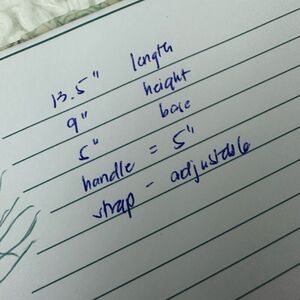 13.5" length
9" height
5" base
handle = 5"
strap - adjustable